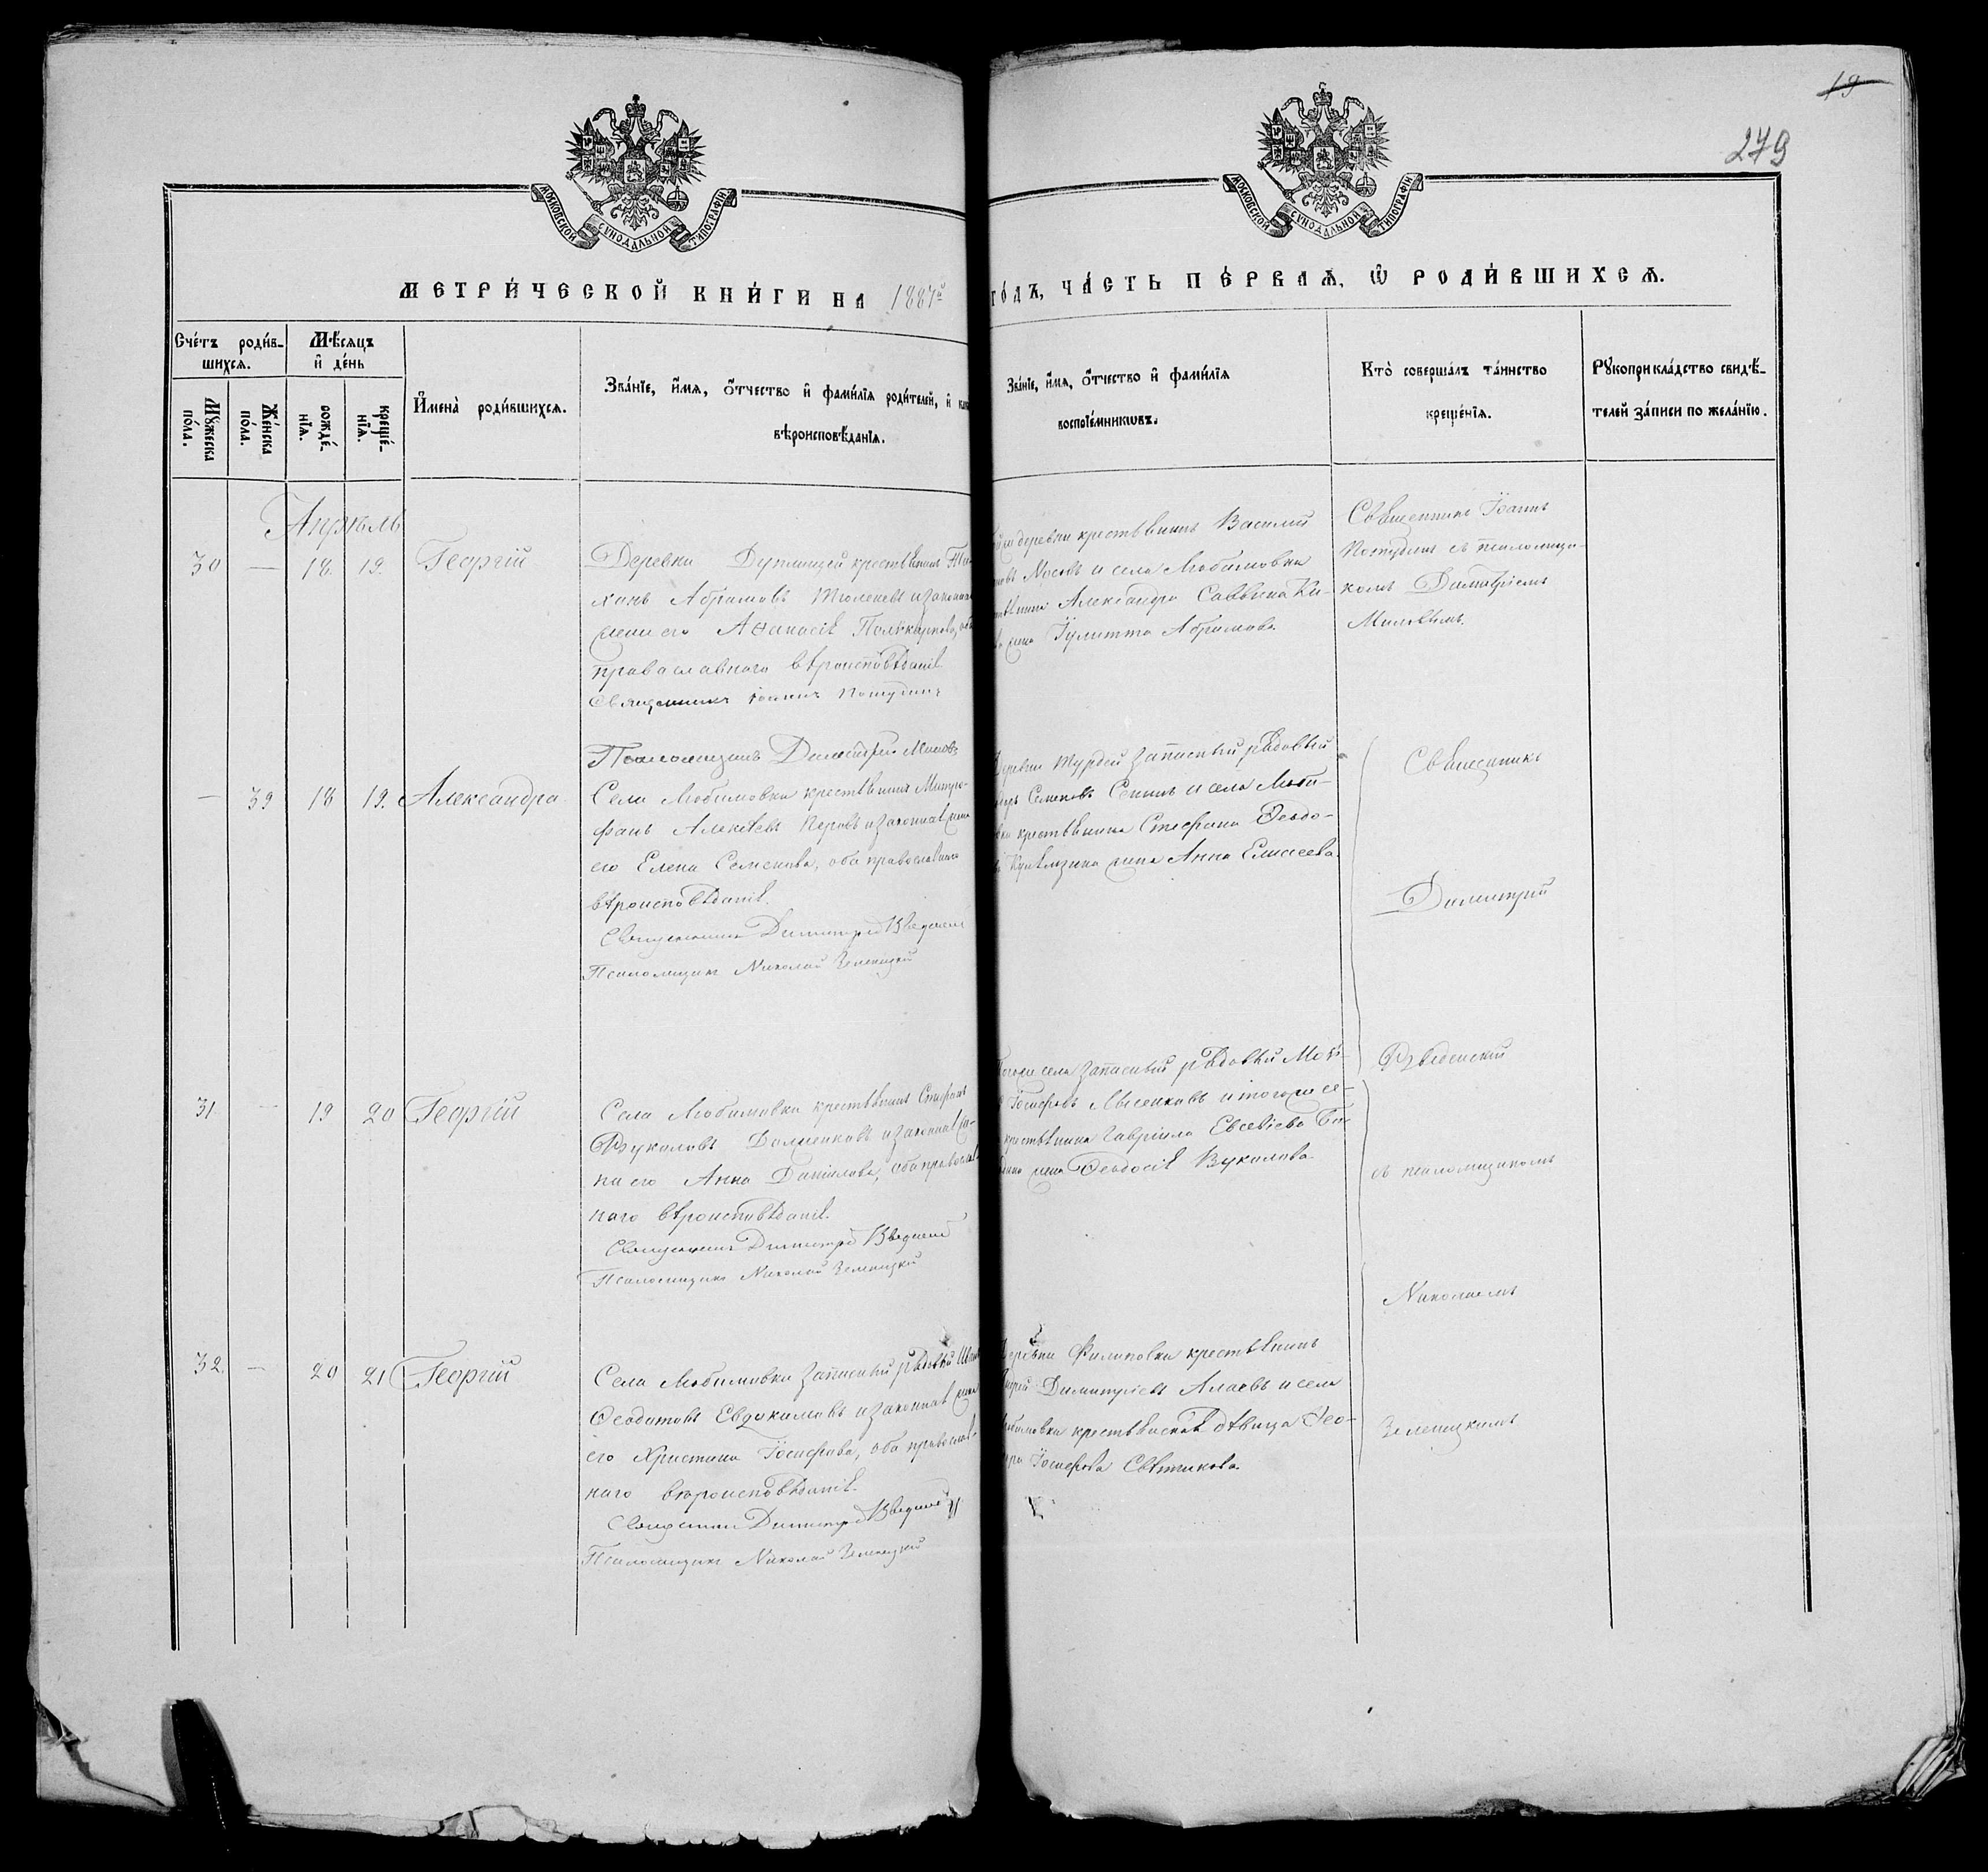 19
279
МОСКОВСКОЙ СѴНОДАЛЬНОЙ ТИПОГРАФІИ
МОСКОВСКОЙ СѴНОДАЛЬНОЙ ТИПОГРАФІИ
МЕТРИ́ЧЕСКОЙ КНИ́ГИ НА 1887й
ГО́ДЪ, ЧА́СТЬ ПЕ́РВАѦ, Ѡ҆ РОДИ́ВШИХСѦ.
Сче́тъ роди́в-
шихсѧ.
Мꙋ́жеска
по́ла.
Же́нска
по́ла.
Мѣ́сѧцъ
и҆ де́нь
рожде́-
нїѧ.
креще́-
нїѧ.
И҆мена̀ роди́вшихсѧ.
Зва́нїе, и҆́мѧ, ѻ҆́тчество и҆ фами́лїѧ роди́телей, и҆
вѣроисповѣ́данїѧ.
Зва́нїе, и҆́мѧ, ѻ҆́тчество и҆ фами́лїѧ
воспрїе́мникѡвъ.
Кто̀ соверша́лъ та́инство
креще́нїѧ.
Рꙋкоприкла́дство свидѣ́-
телей за́писи по жела́нїю.
Апрѣль
30 — 18. 19. Георгій
Деревни крестьянинъ
Абрамовъ Тюленевъ и законная
жена его Аѳанасія Поликарпова,
православнаго вѣроисповѣданія.
Священникъ Іоаннъ Потудинъ
Псаломщикъ Димитрій Миловъ
деревни крестьянинъ Василій
Носовъ и села Любимовки
Александра Саввина Ки-
жена Іулитта Абрамова.
Священникъ Іоаннъ
Потудинъ съ псаломщи-
комъ Димитріемъ
Миловымъ.
— 39 18 19. Александра
Села Любимовки крестьянинъ Митро-
фанъ Алексѣевъ Перовъ и законная жена
его Елена Семенова, оба православнаго
вѣроисповѣданія.
Священникъ Димитрій Введенскій
Псаломщикъ Николай Зеленецкій
Деревни Турдей запасный рядовый
Семеновъ Сенинъ и села Люби-
крестьянина Стефана Ѳеодо-
жена Анна Елисеева.
Священникъ
Димитрій
Введенскій
съ псаломщикомъ
Николаемъ
Зеленецкимъ
31 — 19 20 Георгій
Села Любимовки крестьянинъ Стефанъ
Вуколовъ и законная же-
на его Анна Даніилова, оба православ-
наго вѣроисповѣданія.
Священникъ Димитрій Введенскій
Псаломщикъ Николай Зеленецкій
Тогоже села запасный рядовый Мои-
Іосифовъ Лысенковъ и тогоже се-
крестьянина Гавріила Евсевіева
жена Ѳеодосія Вуколова.
32. — 20 21 Георгій
Села Любимовки запасный рядовый
Ѳеодотовъ Евдокимовъ и законная жена
его Христина Іосифова, оба православ-
наго вѣроисповѣданія.
Священникъ Димитрій Введенскій
Псаломщикъ Николай Зеленецкій
Деревни Филиповки крестьянинъ
Димитріевъ Алаевъ и села
Любимовки крестьянская дѣвица Ѳео-
Іосифова Свѣтикова.